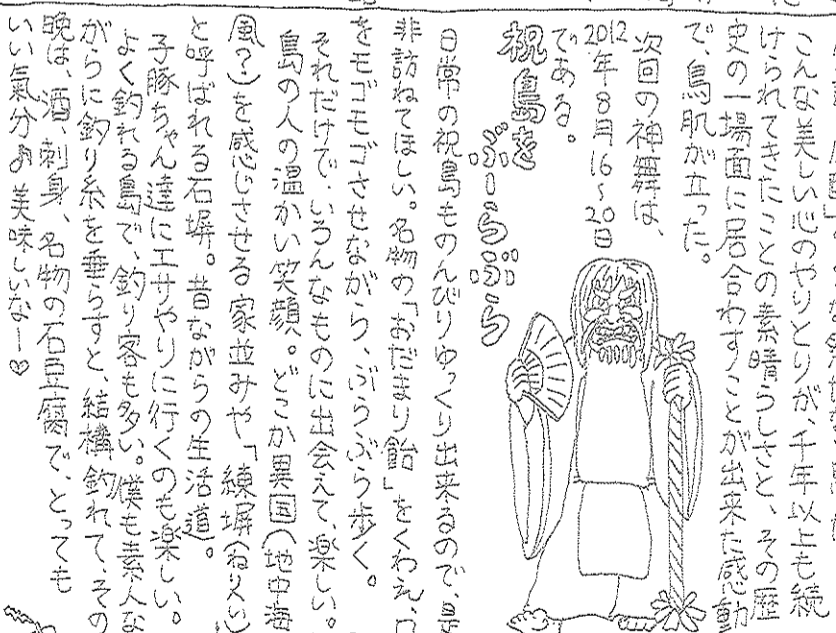 こんな美しい心のやりとりが千年以上も続
けられてきたことの素晴らしさと、その歴
史の一場面に居合わすことが出来た感動
で、鳥肌が立った。
次回の神舞は、
2012年8月16~20日
である。
祝島を
ぶーらぶら
日常の祝島ものんびりゆっくり出来るので、是
非訪ねてほしい。名物の「おだまり飴」をくわえ、口
をモゴモゴさせながら、ぶらぶら歩く。
それだけで、いろんなものに出会えて、楽しい。
島の人の温かい笑顔。どこか異国(地中海
風?)を感じさせる家並みや「練塀(ねりへい)」
と呼ばれる石塀。昔ながらの生活道。
子豚ちゃん達にエサやりに行くのも楽しい。
よく釣れる島で、釣り客も多い。僕も素人な
がらに釣り糸を垂らすと、結構釣れて、その
晩は、酒、刺身、名物の石豆腐で、とっても
いい氣分♪美味しいなー♡